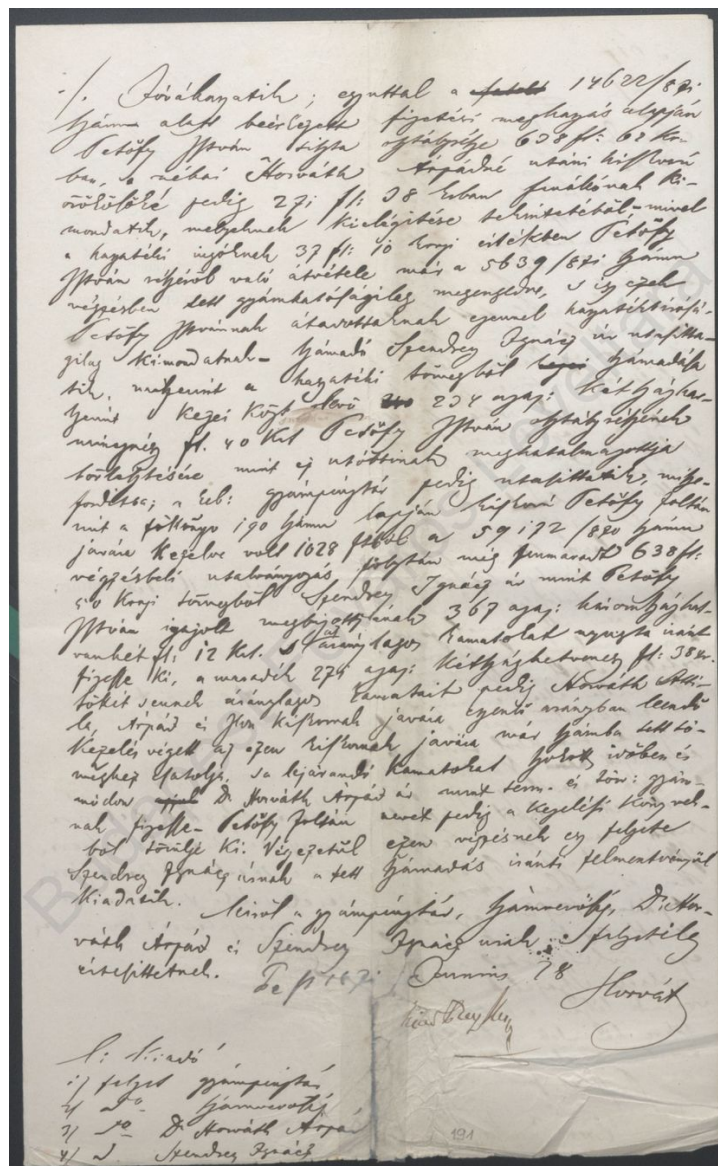 ·/. Jóváhagyatik; egyuttal a 14622/871
szám alatt beérkezett fizetési meghagyás alapján
Petőfy István osztályrésze 638 ft: 62 kr-
ban, a néhai Horváth Árpádné utáni kiskorú
örökösöké pedig 271 ft: 38 krban ki-
mondatik, melyeknek kielégitése tekintetéből – mivel
a hagyatéki ingóknak 37 ft: 10 krnyi értékben Petőfy
István részéről való átvétele már a 5639/871 számu
végzésben lett gyámhatóságilag megengedve, s igy ezek
Petőfy Istvánnak átadottaknak ezennel
gilag kimondatnak – számadó Szendrey Ignácz úr utasitta-
tik, miszerint a hagyatéki tömegből számadása
szerint kezei közt levő 234 azaz: kétszázhar-
mincznégy ft. 40 krt Petőfy István osztályrészének
törlesztésére mint ez utóbbinak meghatalmazottja
forditsa; a gyámpénztár pedig utasittatik, misze-
rint a főkönyv 190 számu lapján kiskorú Petőfy Zoltán
javára kezelve volt 1028 ftból a 59172/870 számu
végzésbeli utalványozás folytán még fenmaradt 638 ft:
50 krnyi tömegből Szendrey Ignácz úr mint Petőfy
István igazolt megbizottjának 367 azaz: háromszázhat-
vanhét ft: 12 krt. s az aránylagos kamatokat nyugta iránt
fizesse ki, a maradék 271 azaz: kétszázhetvenegy ft: 38 kr.
tőkét s ennek aránylagos kamatait pedig Horváth Atti-
la, Árpád és kiskorúak javára egyenlő arányban leendő
kezelés végett az ezen kiskorúak javára már számba tett tő-
mődon Dr Horváth Árpád úr mint term. és tör: gyám-
nak fizesse – Petőfy Zoltán nevét pedig a kezelési könyvek-
ből törülje ki. Végezetül ezen végzésnek egy felzete
Szendrey Ignácz úrnak a tett számadás iránti felmentvényül
kiadatik.
Miről a gyámpénztár, számvevőség, Dr. Hor-
váth Árpád és Szendrey Ignácz urak felzetileg
értesittetnek. Pest 1871 Junius 28
Horvát
l: Kiadó
1/ felzet gyámpénztár
2/ do számvevőség
3/ do Dr Horváth Árpád
4/ d. Szendrey Ignácz
191